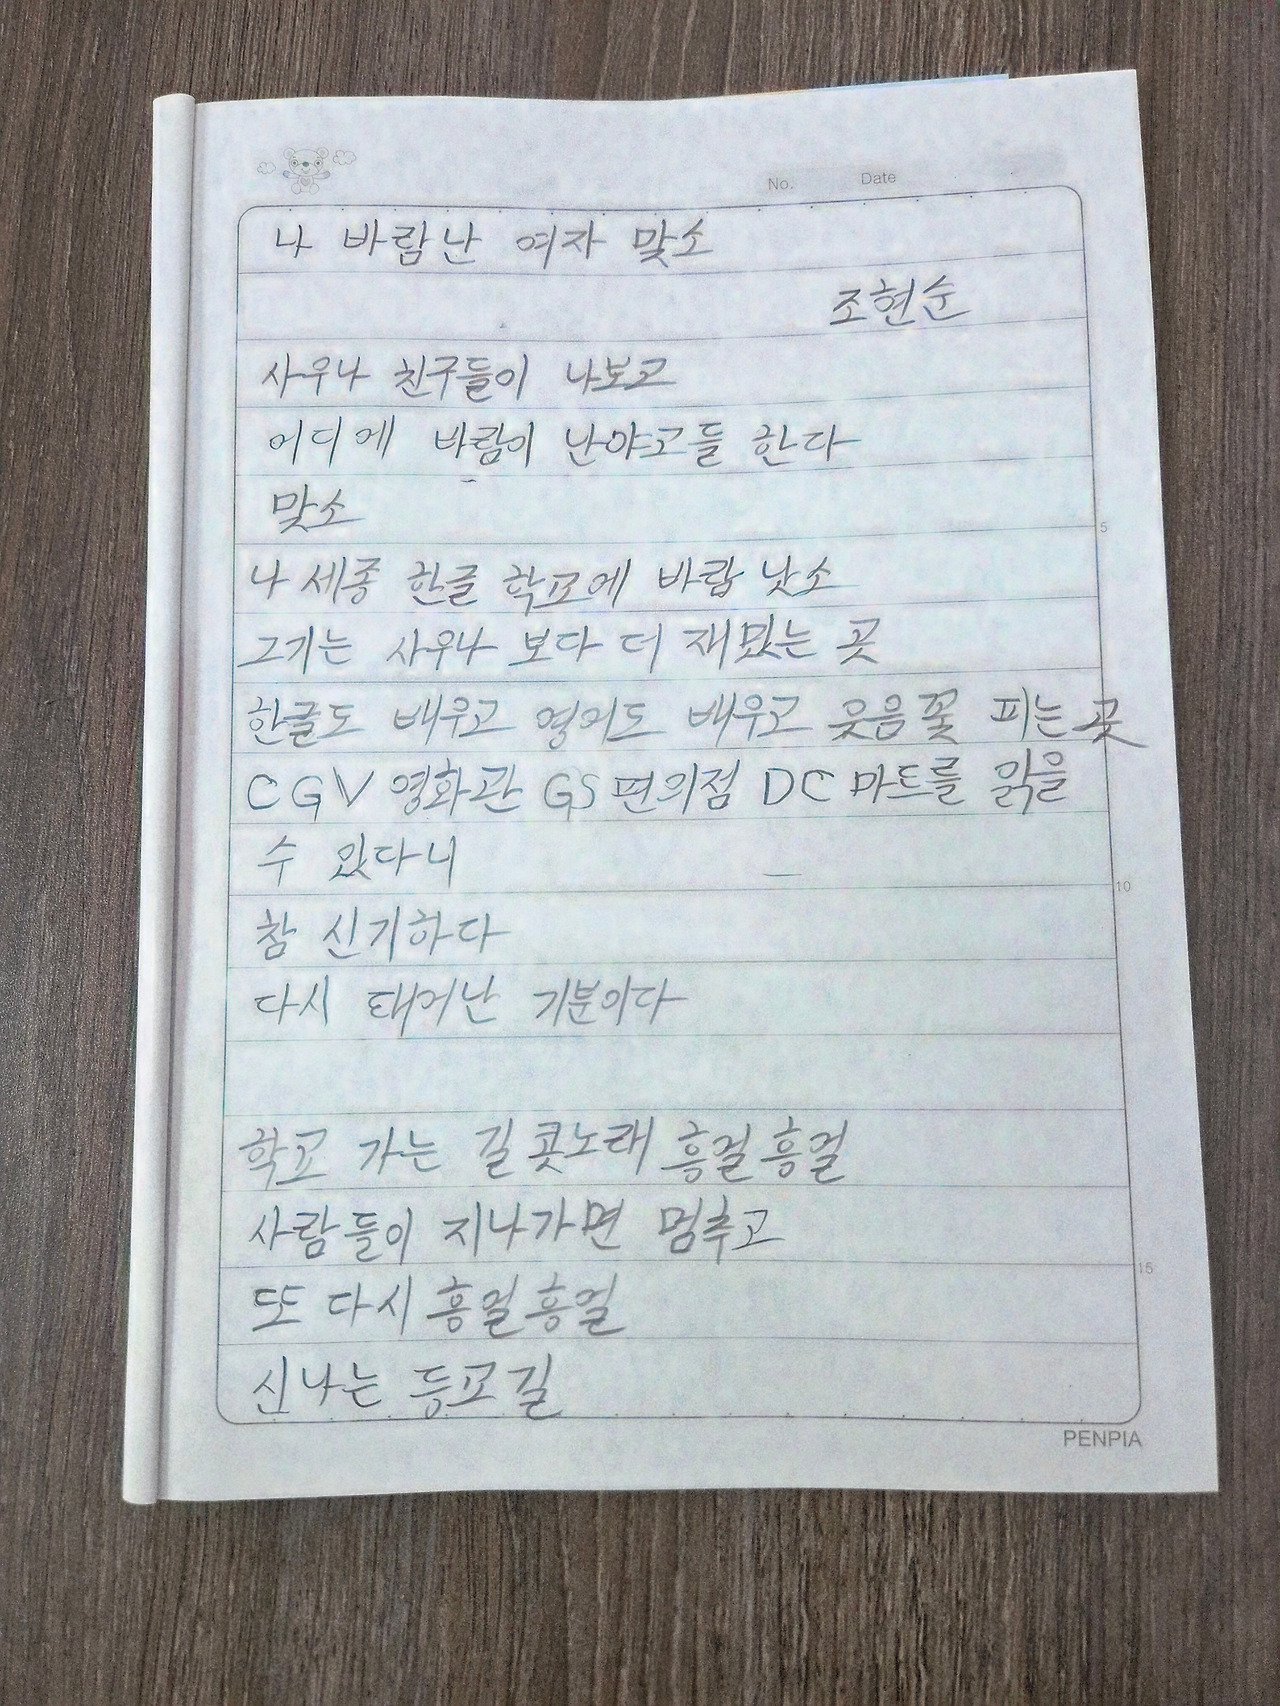 No. Date
나 바람난 여자 맞소
조현순
사우나 친구들이 나보고
어디에 바람이 난야고들 한다
맞소
나 세종 한글 학교에 바람 낫소
그기는 사우나 보다 더 재밌는 곳
한글도 배우고 영어도 배우고 웃음꽃 피는 곳
CGV 영화관 GS 편의점 DC 마트를 읽을
수 있다니
참 신기하다
다시 태어난 기분이다
학교 가는 길 콧노래 흥얼흥얼
사람들이 지나가면 멈추고
또 다시 흥얼흥얼
신나는 등교길
5
10
15
PENPIA